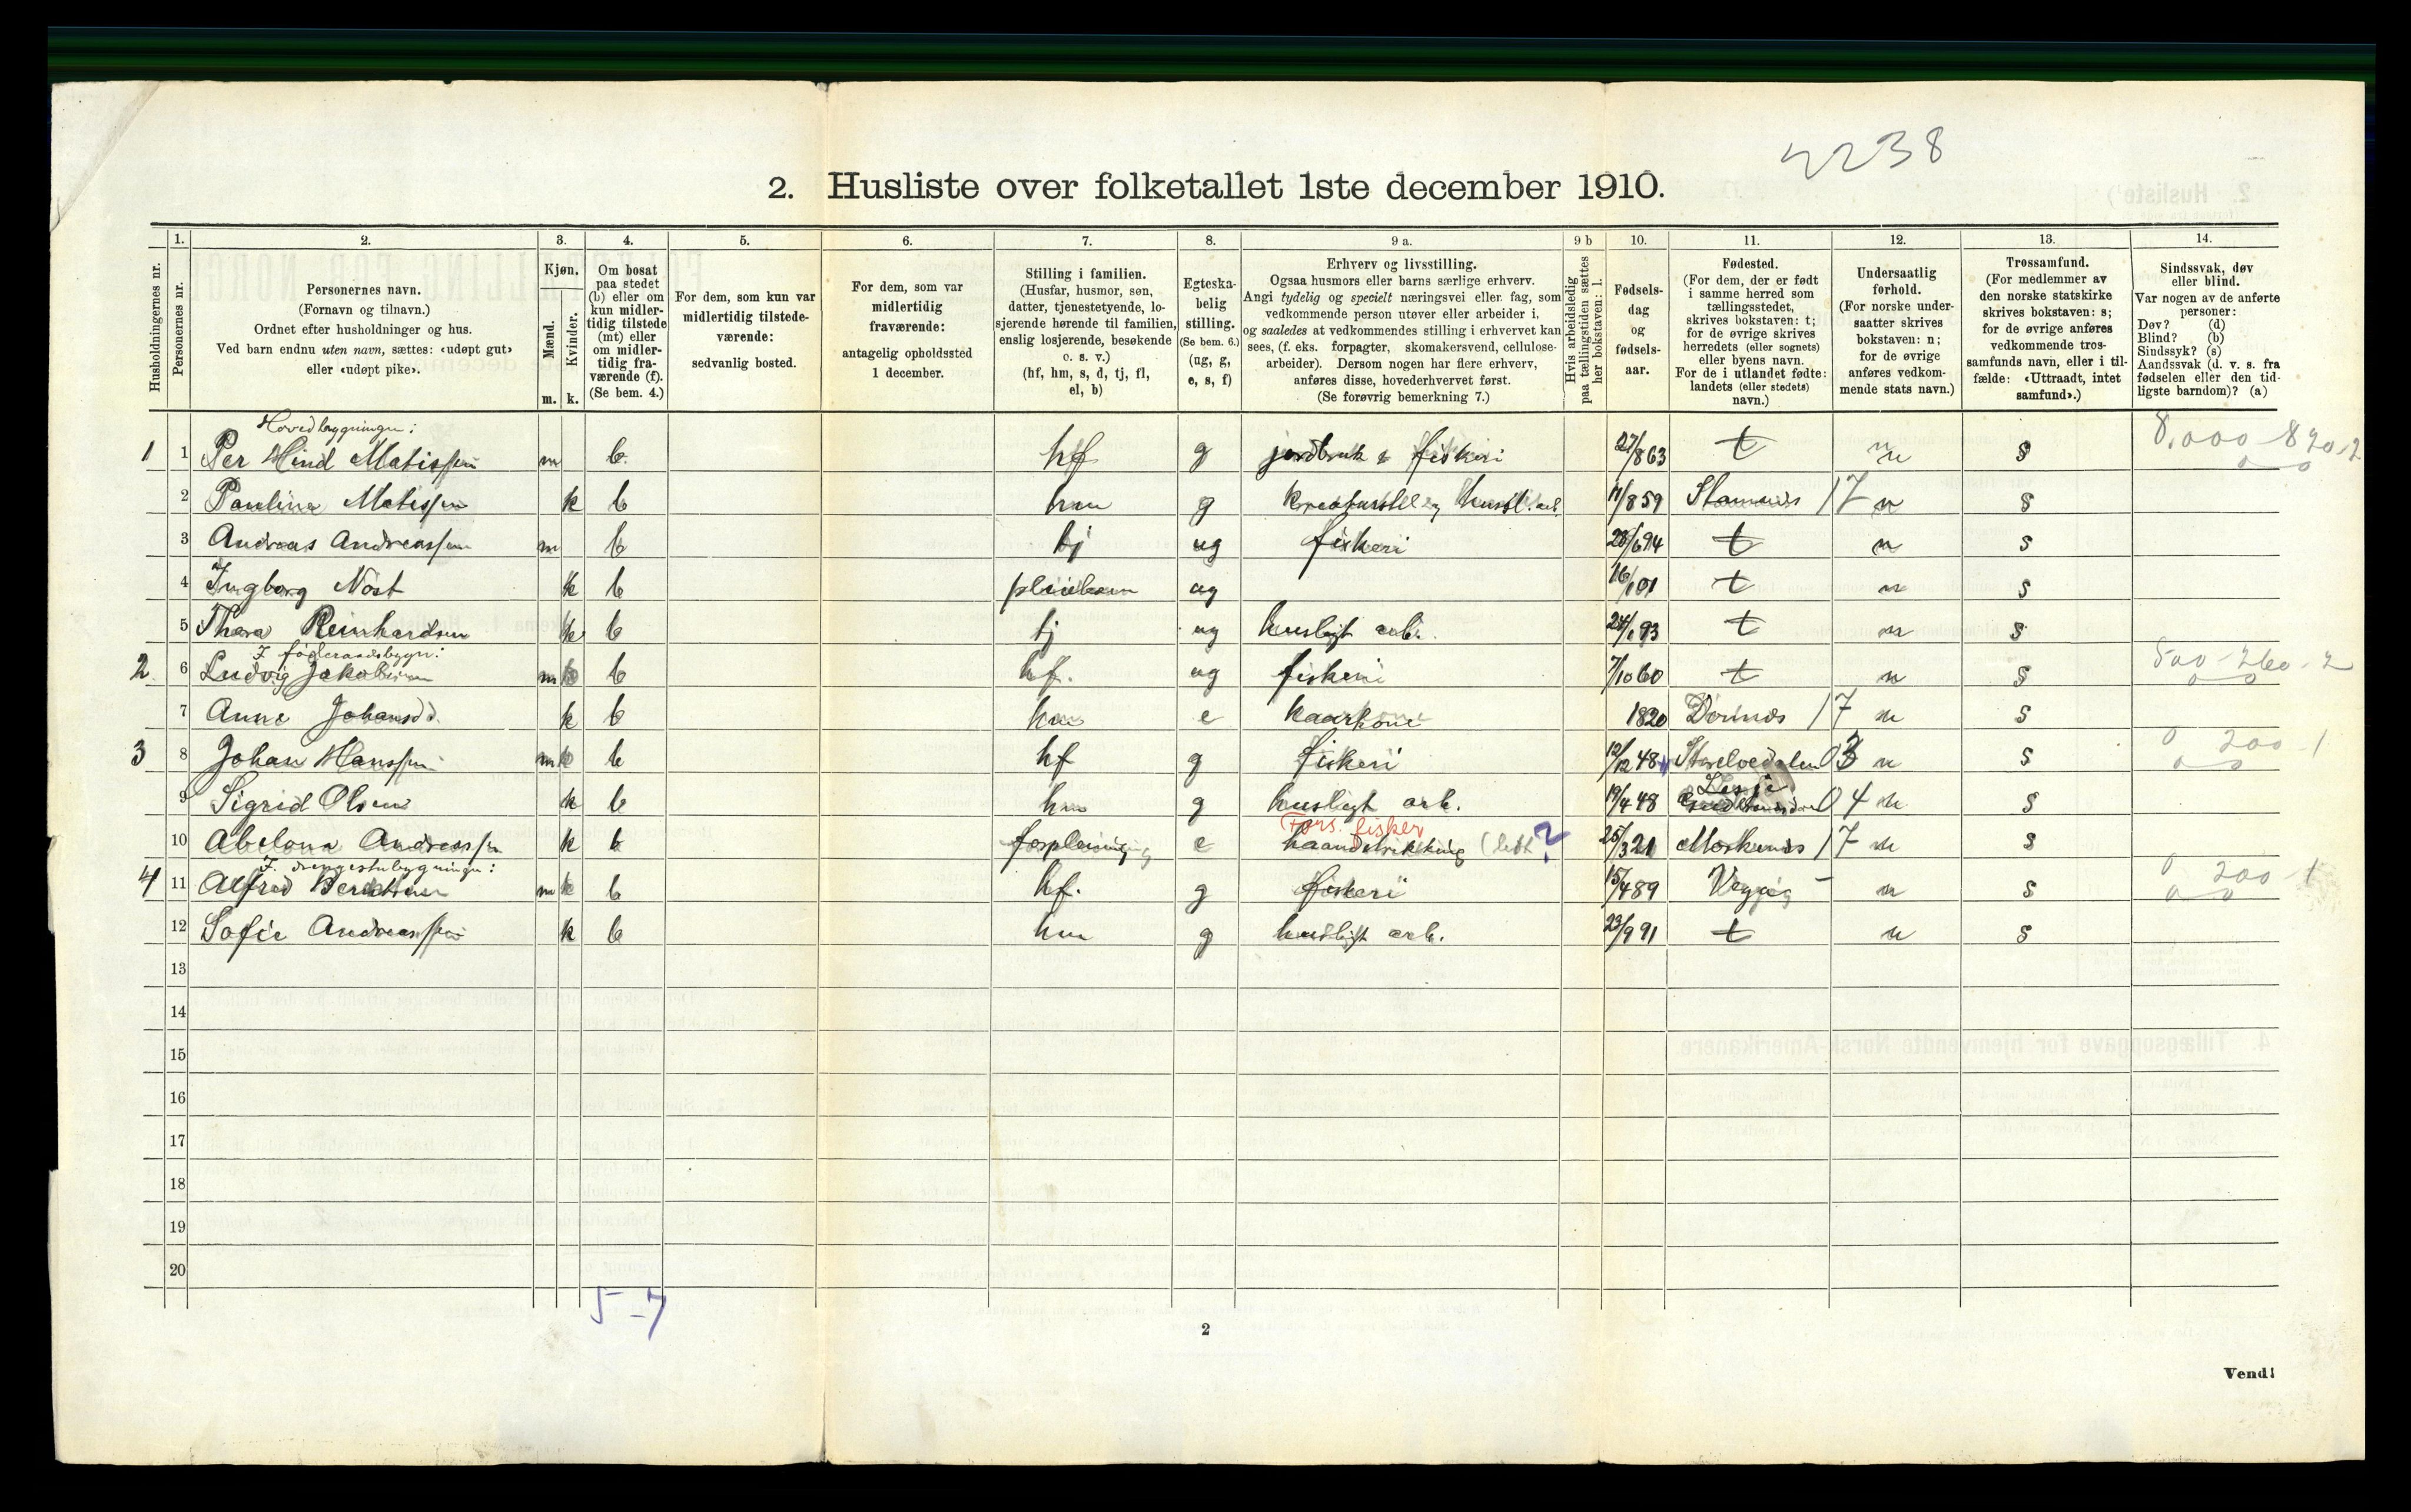 2238
2. Husliste over folketallet 1ste december 1910.
Husholdningernes nr.
1. Personernes nr.
2. Personernes navn. (Fornavn og tilnavn.) Ordnet efter husholdninger og hus. Ved barn endnu uten navn, sættes: «udøpt gut» eller «udøpt pike».
3. Kjøn. Mænd. m. Kvinder. k.
4. Om bosat paa stedet (b) eller om kun midlertidig tilstede (mt) eller om midlertidig fraværende (f). (Se bem. 4.)
5. For dem, som kun var midlertidig tilstedeværende: sedvanlig bosted.
6. For dem, som var midlertidig fraværende: antagelig opholdssted 1 december.
7. Stilling i familien. (Husfar, husmor, søn, datter, tjenestetyende, losjerende hørende til familien, enslig losjerende, besøkende o. s. v.) (hf, hm, s, d, tj, fl, el, b)
8. Egteskabelig stilling. (Se bem. 6.) (ug, g, e, s, f)
9 a. Erhverv og livsstilling. Ogsaa husmors eller barns særlige erhverv. Angi tydelig og specielt næringsvei eller fag, som vedkommende person utøver eller arbeider i, og saaledes at vedkommendes stilling i erhvervet kan sees, (f. eks. forpagter, skomakersvend, cellulosearbeider). Dersom nogen har flere erhverv, anføres disse, hovederhvervet først. (Se forøvrig bemerkning 7.)
9 b Hvis arbeidsledig paa tællingstiden sættes her bokstaven: l.
10. Fødselsdag og fødselsaar.
11. Fødested. (For dem, der er født i samme herred som tællingsstedet, skrives bokstaven: t; for de øvrige skrives herredets (eller sognets) eller byens navn. For de i utlandet fødte: landets (eller stedets) navn.)
12. Undersaatlig forhold. (For norske undersaatter skrives bokstaven: n; for de øvrige anføres vedkommende stats navn.)
13. Trossamfund. (For medlemmer av den norske statskirke skrives bokstaven: s; for de øvrige anføres vedkommende trossamfunds navn, eller i tilfælde: «Uttraadt, intet samfund».)
14. Sindssvak, døv eller blind. Var nogen av de anførte personer: Døv? (d) Blind? (b) Sindssyk? (s) Aandssvak (d. v. s. fra fødselen eller den tidligste barndom)? (a)
Hovedbygningen:
1 1 Per Hind Matissen m b hf g jordbruk & fiskeri 27/8 63 t n s 8.000-820-2
2 Paulina Matissen k b hm g kreaturstell og husl. arb. 11/8 59 Stamnes 17 n s
3 Andreas Andreassen m b tj ug fiskeri 28/6 94 t n s
4 Ingborg Nøst k b pleiebarn ug 16/1 01 t n s
5 Thora Reinhardsen k b tj ug husligt arb. 24/1 93 t n s
I føderaadsbygn:
2 6 Ludvig Jakobsen m b hf. ug fiskeri 7/10 60 t n s 500-260-2
7 Anne Johansd. k b hm e kaarkone 1820 Dønnes 17 n s
3 8 Johan Hanssen m b hf g fiskeri 12/12 48 Storelvedalen 03 n s 0 200-1
9 Sigrid Olsen k b hm g husligt arb. 19/4 48 Lesje 04 n s
Fors. fisker
10 Abelona Andreassen k b forpleining e haandstrikking ? 25/3 21 Moskenes 17 n s
I drengestubygningen:
4 11 Alfred m b hf. g fiskeri 15/4 89 n s 0 200-1
12 Sofie Andreassen k b hm g husligt arb. 23/9 91 t n s
13
14
15
16
17
18
19
20
5-7
2
Vend!